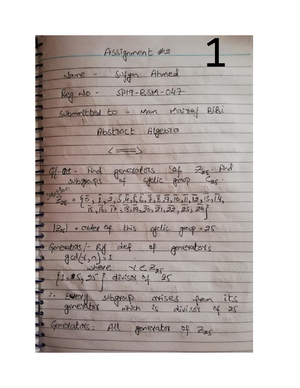 Assignment #2
1
Name - Sufyan Ahmed
Reg No - SP19-BSM-047
Submitted to - Mam Mairaj BiBi
Abstract Algebra
Q1- Find generators of Z25. Find
subgroups of cyclic group Z25
Z25 = {0, 1, 2, 3, 4, 5, 6, 7, 8, 9, 10, 11, 12, 13, 14,
15, 16, 17, 18, 19, 20, 21, 22, 23, 24}
|Z25| = order of this cyclic group = 25
Generators:- By def of generators
gcd(r, n) = 1
where r ∈ Z25
divisor of 25
∴ Every subgroup arises from its
generator which is divisor of 25
Generators: All generator of Z25